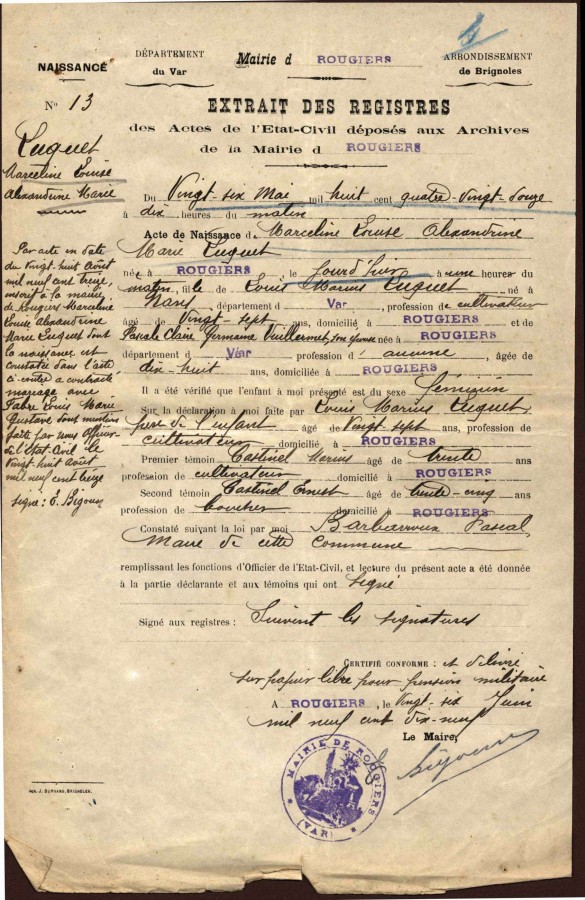 NAISSANCE
N° 13
DÉPARTEMENT
du Var
Mairie d ROUGIERS
ARRONDISSEMENT
de Brignoles
EXTRAIT DES REGISTRES
des Actes de l'Etat-Civil déposés aux Archives
de la Mairie d ROUGIERS
Luquet
Marceline Louise
Alexandrine Marie
Par acte en date
du vingt huit Août
mil neuf cent treize,
inscrit à la mairie
de Rougiers Marceline
Louise Alexandrine
Marie Luquet dont
la naissance est
constatée dans l'acte
ci-contre a contracté
mariage avec
Fabre Louis Marie
Gustave
faite par nous Officier
de l'Etat Civil le
Vingt huit Août
mil neuf cent treize
signé: E. Bigoux
Du Vingt-six Mai mil huit cent quatre-vingt-douze
à dix heures du matin
Acte de Naissance d e Marceline Louise Alexandrine
Marie Luquet
né à ROUGIERS, le jourd'hui à une heures du
matin, fille de Louis Marius Luquet né à
Nans, département d Var, profession de cultivateur
âgé de vingt-sept ans, domicilié à ROUGIERS et de
Claire Germaine Vuillermet, son épouse née à ROUGIERS
département d Var profession d' aucune, âgée de
dix-huit ans, domiciliée à ROUGIERS
Il a été vérifié que l'enfant à moi présenté est du sexe féminin
Sur la déclaration à moi faite par Louis Marius Luquet
père de l'enfant âgé de vingt sept ans, profession de
cultivateur domicilié à ROUGIERS
Premier témoin Castinel Marius âgé de trente ans
profession de cultivateur domicilié à ROUGIERS
Second témoin Castinel Ernest âgé de trente-cinq
profession de boucher domicilié à ROUGIERS
Constaté suivant la loi par moi Barbarroux Pascal
Maire de cette Commune
remplissant les fonctions d'Officier de l'Etat-Civil, et lecture du présent acte a été donnée
à la partie déclarante et aux témoins qui ont signé
Signé aux registres : Suivent les signatures
CERTIFIÉ CONFORME : et délivré
sur papier libre pour pension militaire
A ROUGIERS, le vingt-six Juin
mil neuf cent dix-neuf
Le Maire,
MAIRIE DE ROUGIERS
(VAR)
IMP. J. DURAND, BRIGNOLES.